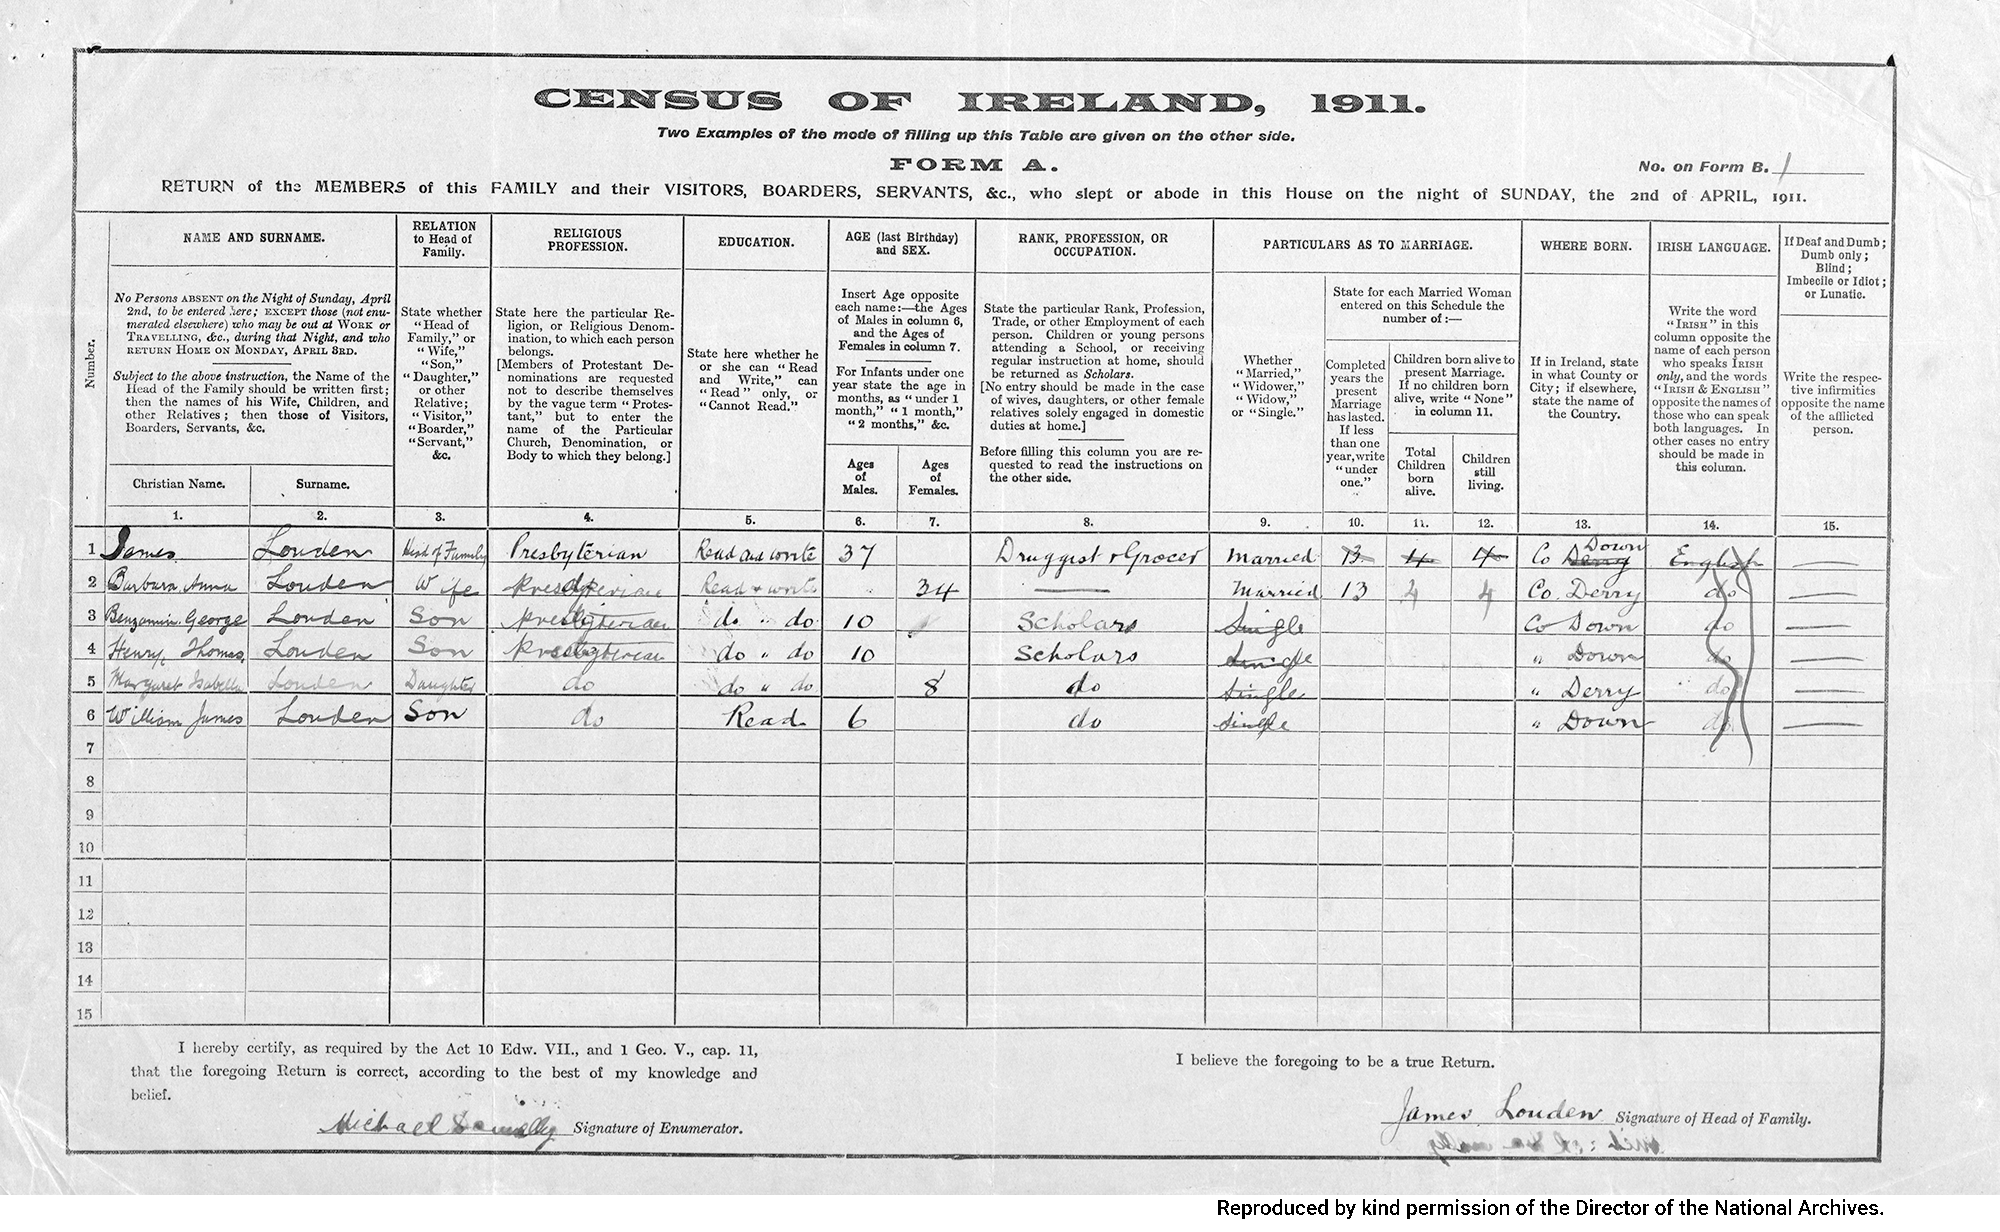 CENSUS OF IRELAND, 1911.
Two Examples of the mode of filling up this Table are given on the other side.
FORM A.
No. on Form B. 1
RETURN of the MEMBERS of this FAMILY and their VISITORS, BOARDERS, SERVANTS, &c., who slept or abode in this House on the night of SUNDAY, the 2nd of APRIL, 1911.
Number.
NAME AND SURNAME.
No Persons ABSENT on the Night of Sunday, April
2nd, to be entered here; EXCEPT those (not enu-
merated elsewhere) who may be out at WORK or
TRAVELLING, &c., during that Night, and who
RETURN HOME ON MONDAY, APRIL 3RD.
Subject to the above instruction, the Name of the
Head of the Family should be written first;
then the names of his Wife, Children, and
other Relatives; then those of Visitors,
Boarders, Servants, &c.
Christian Name.
Surname.
RELATION
to Head of
Family.
State whether
"Head of
Family," or
"Wife,"
"Son,"
"Daughter,"
or other
Relative;
"Visitor,"
"Boarder,"
"Servant,"
&c.
RELIGIOUS
PROFESSION.
State here the particular Re-
ligion, or Religious Denom-
ination, to which each person
belongs.
[Members of Protestant De-
nominations are requested
not to describe themselves
by the vague term "Protes-
tant," but to enter the
name of the Particular
Church, Denomination, or
Body to which they belong.]
EDUCATION.
State here whether he
or she can "Read
and Write," can
"Read" only, or
"Cannot Read."
AGE (last Birthday)
and SEX.
Insert Age opposite
each name:—the Ages
of Males in column 6,
and the Ages of
Females in column 7.
For Infants under one
year state the age in
months, as "under 1
month," "1 month,"
"2 months," &c.
Ages
of
Males.
Ages
of
Females.
RANK, PROFESSION, OR
OCCUPATION.
State the particular Rank, Profession,
Trade, or other Employment of each
person. Children or young persons
attending a School, or receiving
regular instruction at home, should
be returned as Scholars.
[No entry should be made in the case
of wives, daughters, or other female
relatives solely engaged in domestic
duties at home.]
Before filling this column you are re-
quested to read the instructions on
the other side.
PARTICULARS AS TO MARRIAGE.
Whether
"Married,"
"Widower,"
"Widow,"
or "Single."
State for each Married Woman
entered on this Schedule the
number of:—
Completed
years the
present
Marriage
has lasted.
If less
than one
year, write
"under
one."
Children born alive to
present Marriage.
If no children born
alive, write "None"
in column 11.
Total
Children
born
alive.
Children
still
living.
WHERE BORN.
If in Ireland, state
in what County or
City; if elsewhere,
state the name of
the Country.
IRISH LANGUAGE.
Write the word
"IRISH" in this
column opposite the
name of each person
who speaks IRISH
only, and the words
"IRISH & ENGLISH"
opposite the names of
those who can speak
both languages. In
other cases no entry
should be made in
this column.
If Deaf and Dumb;
Dumb only;
Blind;
Imbecile or Idiot;
or Lunatic.
Write the respec-
tive infirmities
opposite the name
of the afflicted
person.
1. 2. 3. 4. 5. 6. 7. 8. 9. 10. 11. 12. 13. 14. 15.
1 James Louden Head of Family Presbyterian Read and write 37 Druggist & Grocer Married 13 4 4 Co Derry Down English
2 Barbara Anna Louden Wife Presbyterian Read & write 34 Married 13 4 4 Co. Derry do
3 Benjamin George Louden Son Presbyterian do " do 10 Scholars Single Co Down do
4 Henry Thomas Louden Son Presbyterian do " do 10 Scholars Single " Down do
5 Margaret Isabella Louden Daughter do do " do 8 do Single " Derry do
6 William James Louden Son do Read 6 do Single " Down do
7
8
9
10
11
12
13
14
15
I hereby certify, as required by the Act 10 Edw. VII., and 1 Geo. V., cap. 11,
that the foregoing Return is correct, according to the best of my knowledge and
belief.
Michael Donnelly Signature of Enumerator.
I believe the foregoing to be a true Return.
James Louden Signature of Head of Family.
Reproduced by kind permission of the Director of the National Archives.